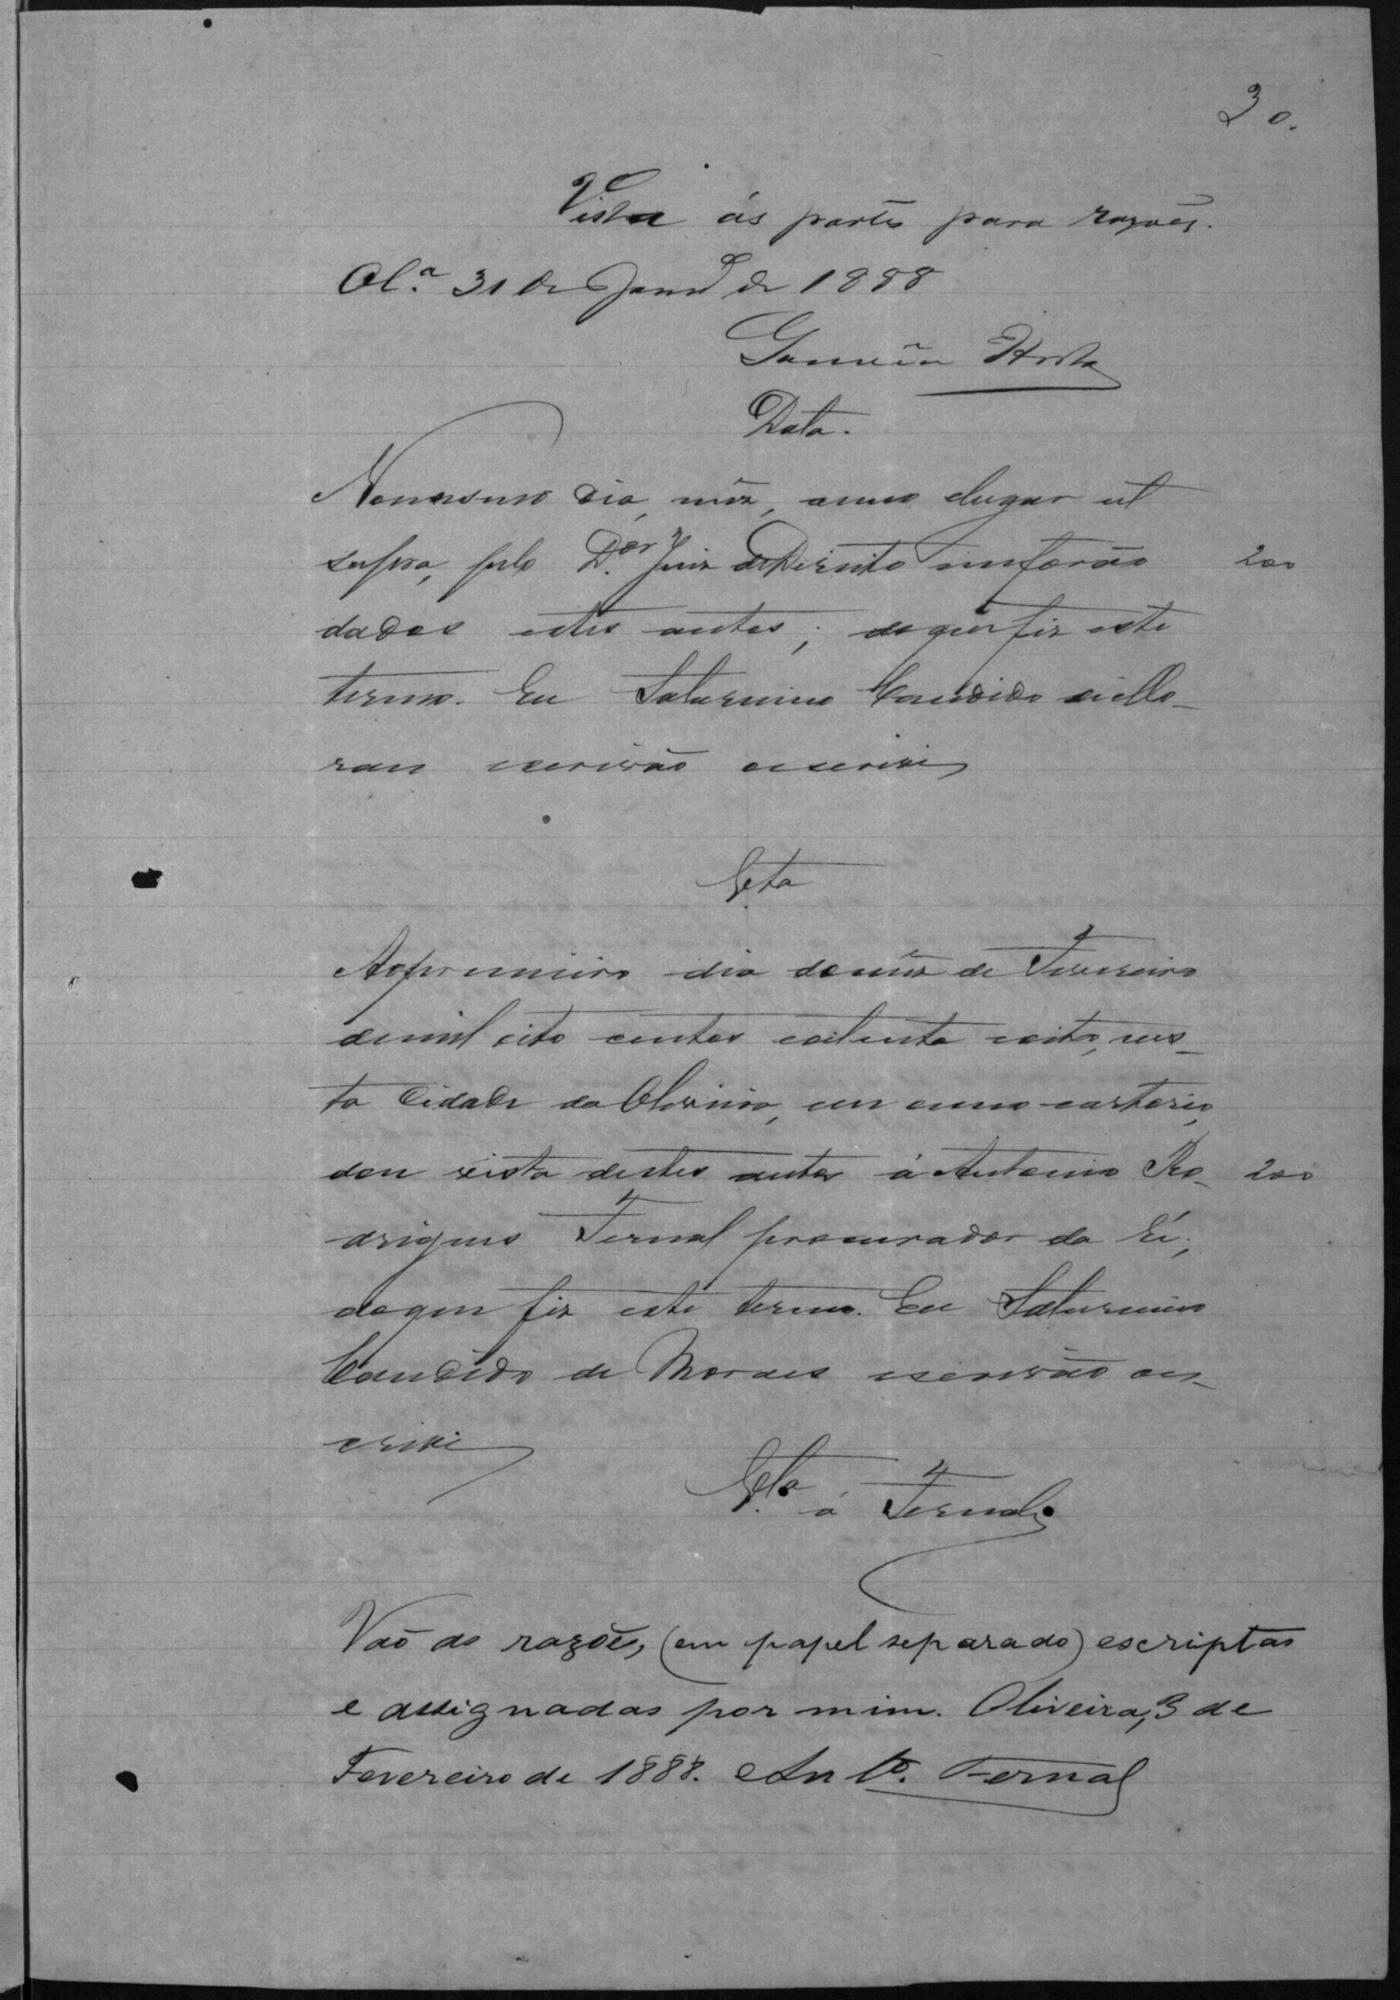 30.
Vista ás partes para razões.
Olª 31 de Janrº de 1888
Horta
Data.
No mesmo dia, mez, anno e lugar ut
supra, pelo D.or Juiz de Direito me forão 200
dados estes autos; do que fiz este
termo. Eu Saturnino Candido de Mo-
raes escrivão escrivi
Vta
Ao primeiro dia do mez de Fevereiro
de mil oito centos oitenta e oito, nes-
ta Cidade da Oliveira, em meu cartorio,
dou vista destes autos á Antonio Ro- 200
drigues Fernal procurador da Ré;
do que fiz este termo. Eu Saturnino
Candido de Moraes escrivão es-
crivi
Vta á Fernal
Vão as razões, (em papel separado) escriptas
e assignadas por mim. Oliveira, 3 de
Fevereiro de 1888. Anto. Fernal